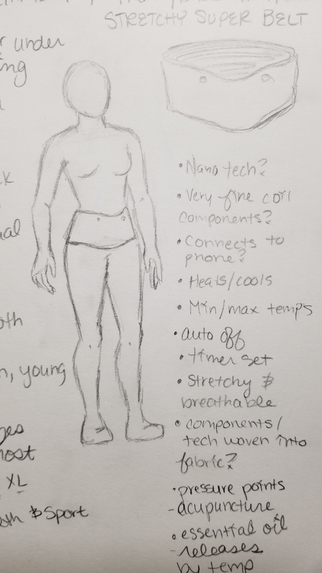 STRETCHY SUPER BELT
under
ing
• Nano tech?
• Very fine coil
components?
• Connects to
phone?
• Heats/cools
• Min/max temps
• auto off
• timer set
• Stretchy &
breathable
• components/
tech woven into
fabric?
• pressure points
- acupuncture
• essential oil
- releases
by temp
oth
n, young
ges
most
XL
oth & Sport